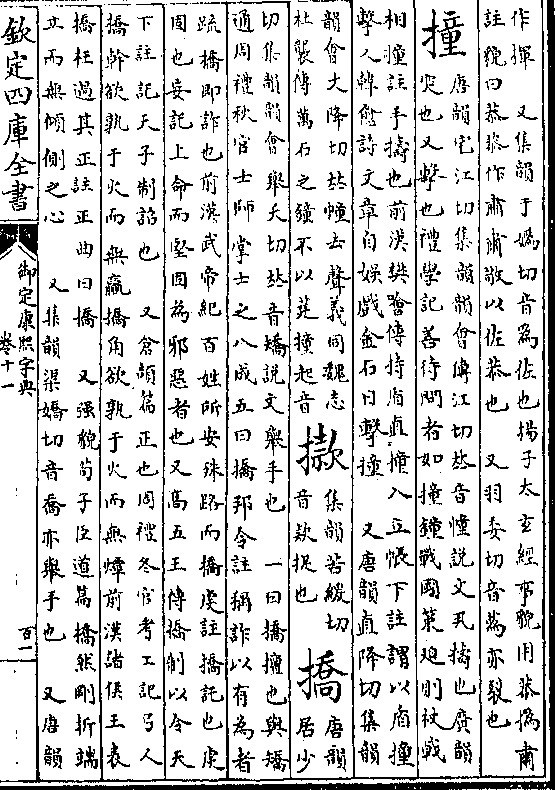 作撝　又集韻于嬀切音為佐也揚子太玄經事貌用恭撝肅
註貌曰恭恭作肅肅敬以佐恭也　又羽委切音蔿亦裂也
撞
唐韻宅江切集韻韻會傳江切𠀤音幢說文丮擣也廣韻
突也又擊也禮學記善待問者如撞鐘戰國策迫則杖戟
相撞註手擣也前漢樊噲傳持盾直撞入立帳下註謂以盾撞
擊人韓愈詩文章自娛戲金石日擊撞　又唐韻直降切集韻
韻會丈降切𠀤幢去聲義同魏志
杜襲傳萬石之鐘不以莛撞起音
集韻苦緩切
音欵捉也
撟
唐韻
居少
切集韻韻會舉夭切𠀤音矯說文舉手也　一曰撟擅也與矯
通周禮秋官士師掌士之八成五曰撟邦令註稱詐以有為者
疏撟即詐也前漢武帝紀百姓所安殊路而撟虔註撟託也虔
固也妄託上命而堅固為邪惡者也又高五王傳撟制以令天
下註託天子制詔也　又倉頡篇正也周禮冬官考工記弓人
撟幹欲孰于火而無贏撟角欲孰于火而無燂前漢諸侯王表
撟枉過其正註正曲曰撟　又强貌荀子臣道篇撟然剛折端
志而無傾側之心　又集韻渠嬌切音喬亦舉手也　又唐韻
欽定四庫全書
御定康熙字典
卷十一
百一